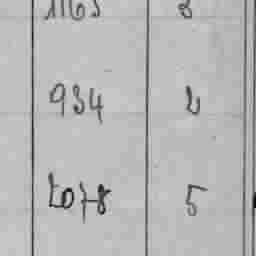 1163 8
934 2
2078 5